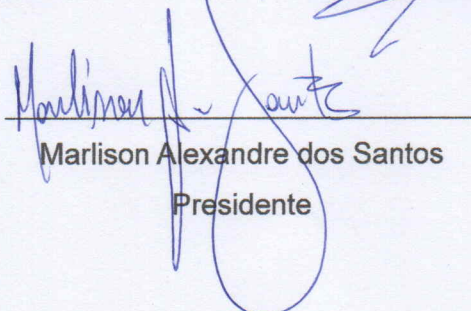 Marlison A. Santos
Marlison Alexandre dos Santos
Presidente